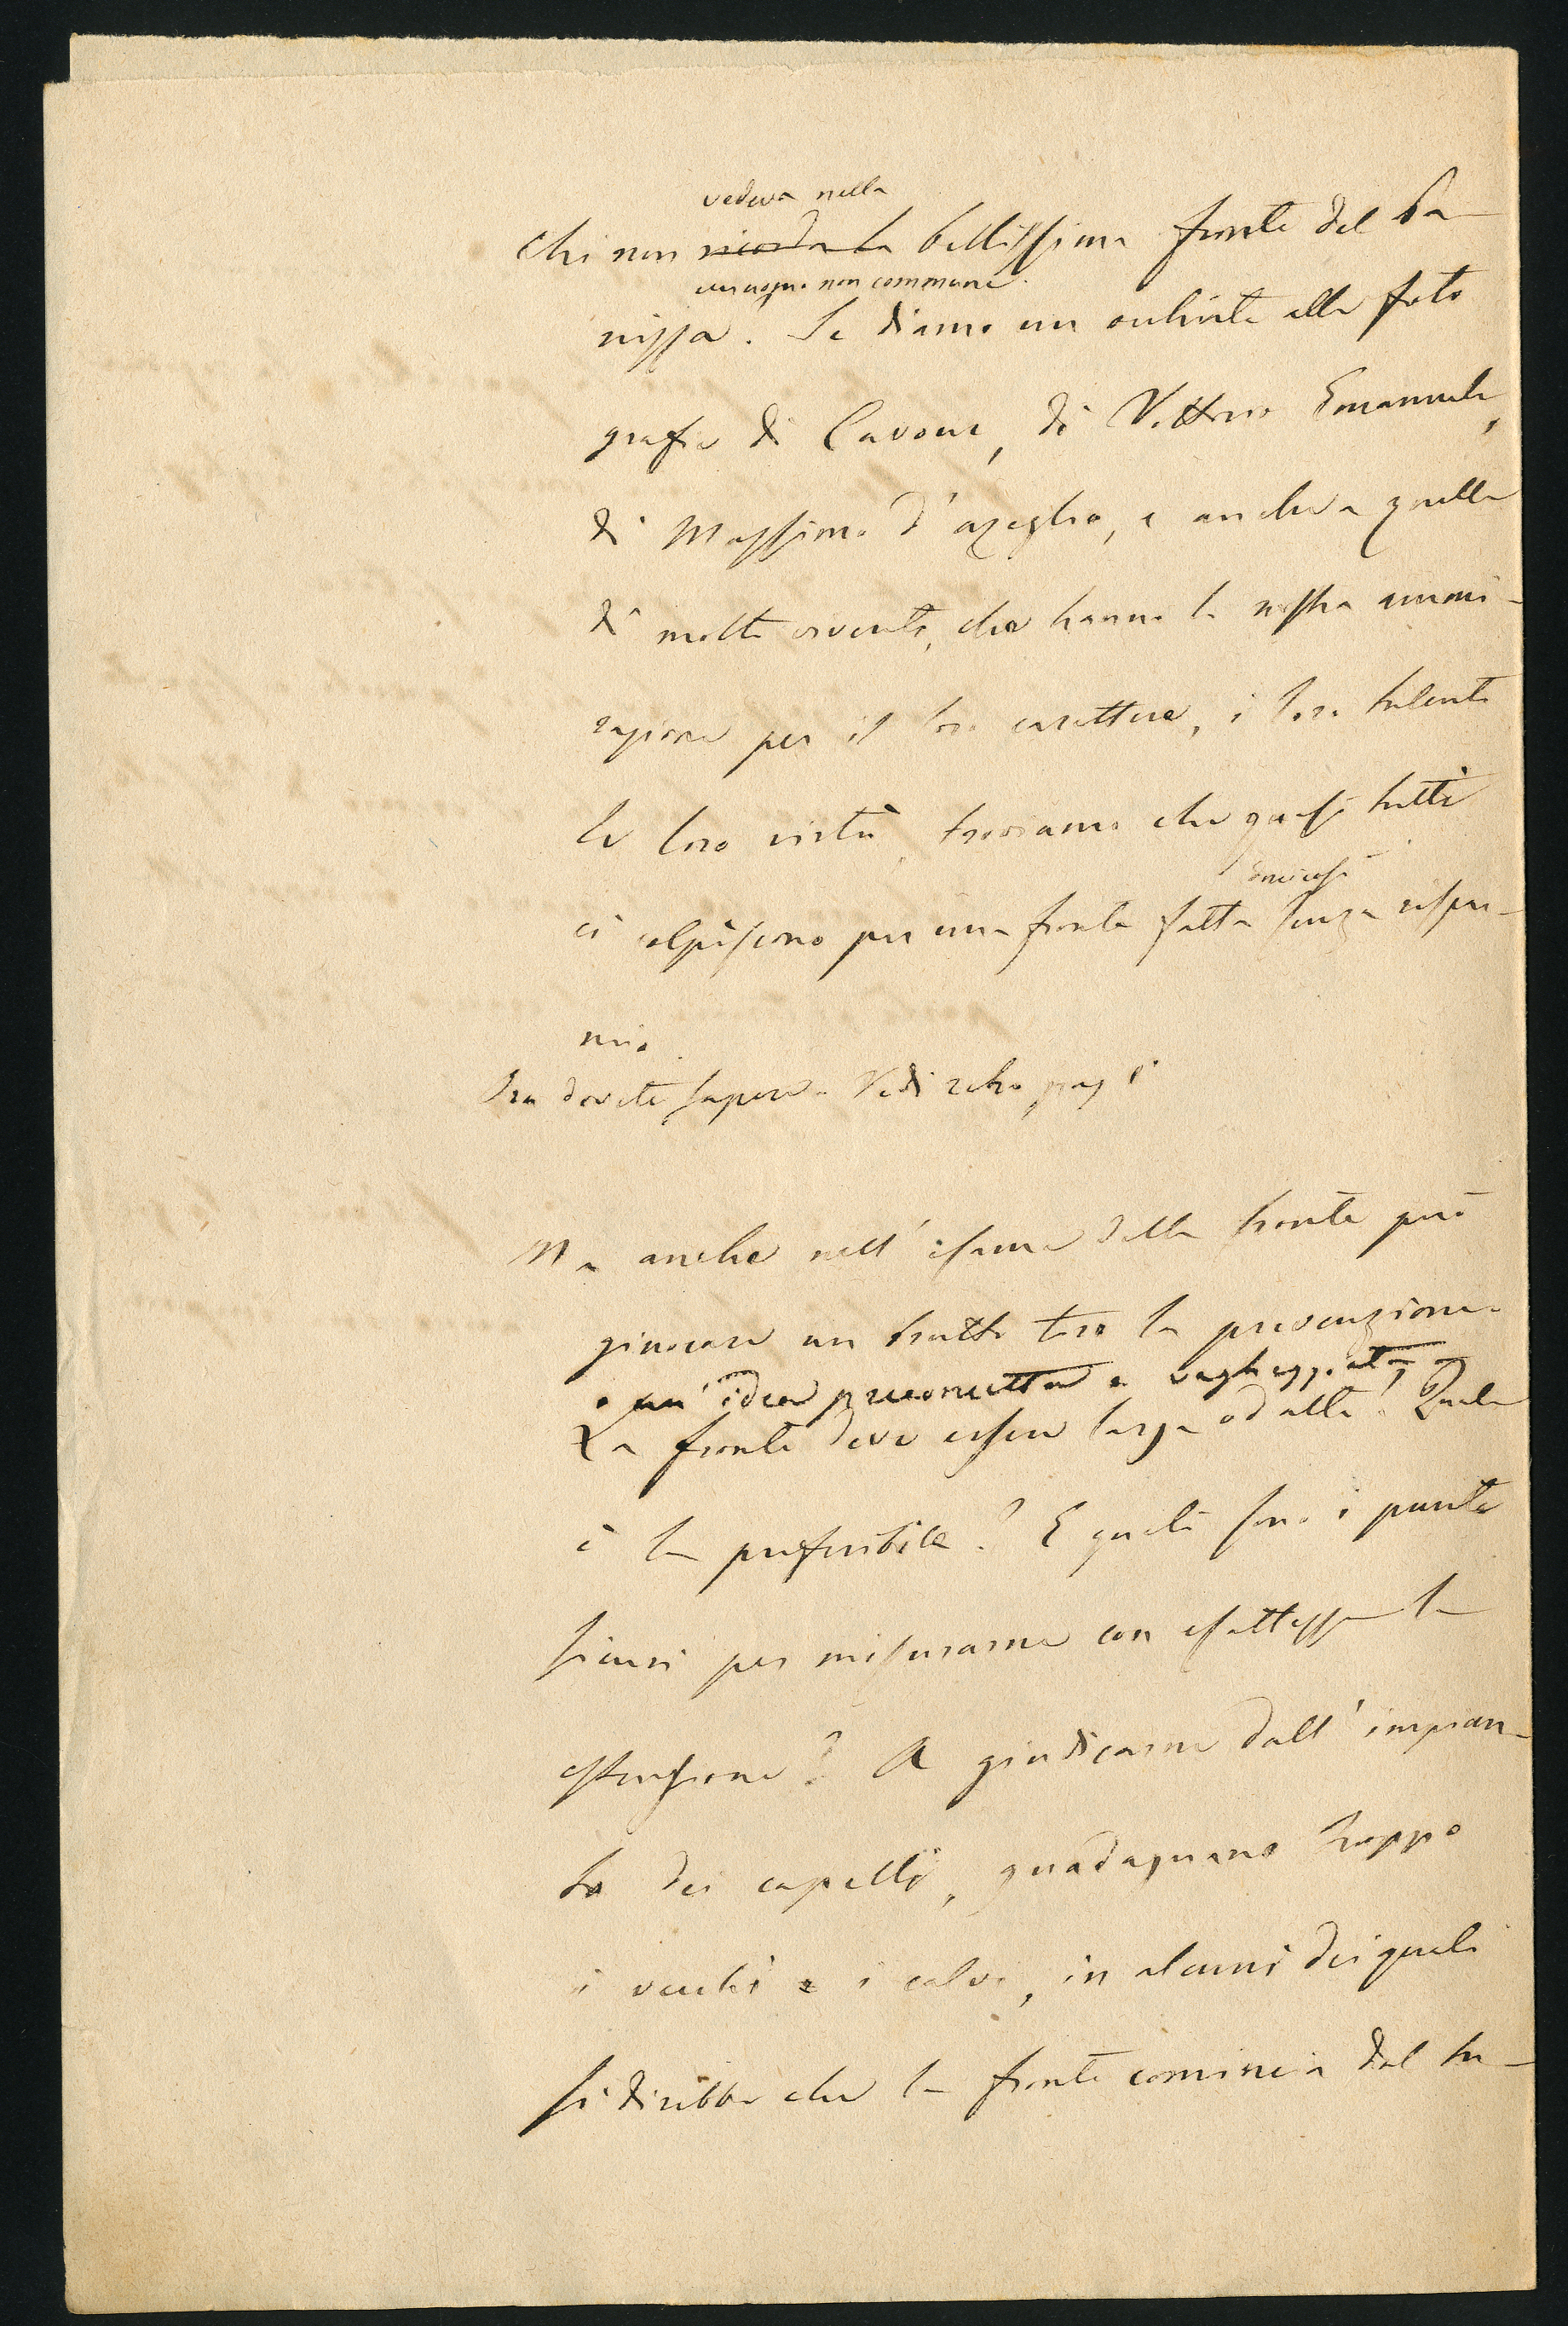 vedeva nella
Chi non ricorda la bellissima fronte del Ba-
un uomo non commune.
nissa. Se diamo un occhiata alle foto
grafie di Cavour, di Vittorio Emanuele,
di Massimo d'azeglio, e anche a quelle
di molti viventi, che hanno la nostra ammi-
razione per il loro carattere, i loro talenti
le loro virtù, troviamo che quasi tutti
ci colpiscono per una fronte fatta senza rispar-
mio.
Ora dovete sapere. Vedi retro pag
Ma anche nell'esame della fronte può
giuocare un brutto tiro la prevenzione
o un'idea preconcetta e vagheggiata
La fronte deve essere larga od alta? Quale
è la preferibile? E quali sono i punti
sicuri per misurarne con esattezza la
estensione? A giudicarne dall'impian-
to dei capelli, guadagnano troppo
i vecchi e i calvi, in alcuni dei quali
si direbbe che la fronte comincia dal na-